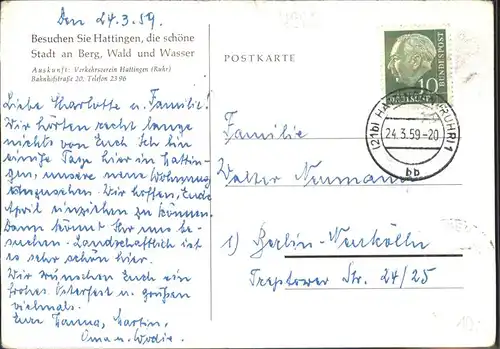 Den 24.3.59.
Besuchen Sie Hattingen, die schöne
Stadt an Berg, Wald und Wasser
Auskunft: Verkehrsverein Hattingen (Ruhr)
Bahnhofstraße 20; Telefon 2396
Liebe Charlotte u. Familie!
Wir hörten recht lange
nichts von Euch. Ich bin
einige Tage hier in Hattin-
gen, unsere neue Wohnung
anzusehen. Wir hoffen, Ende
April einziehen zu können.
Dann könnt Ihr uns be-
suchen. Landschaftlich ist
es sehr schön hier.
Wir wünschen Euch ein
frohes Osterfest u. grüßen
vielmals.
Eure Hanna, Martin,
Oma u.
POSTKARTE
10
DEUTSCHE
BUNDESPOST
(21b) HA (RUHR) 1
24.3.59-20
bb
Familie
Walter Neumann
1) Berlin-Neukölln
Treptower Str. 24/25